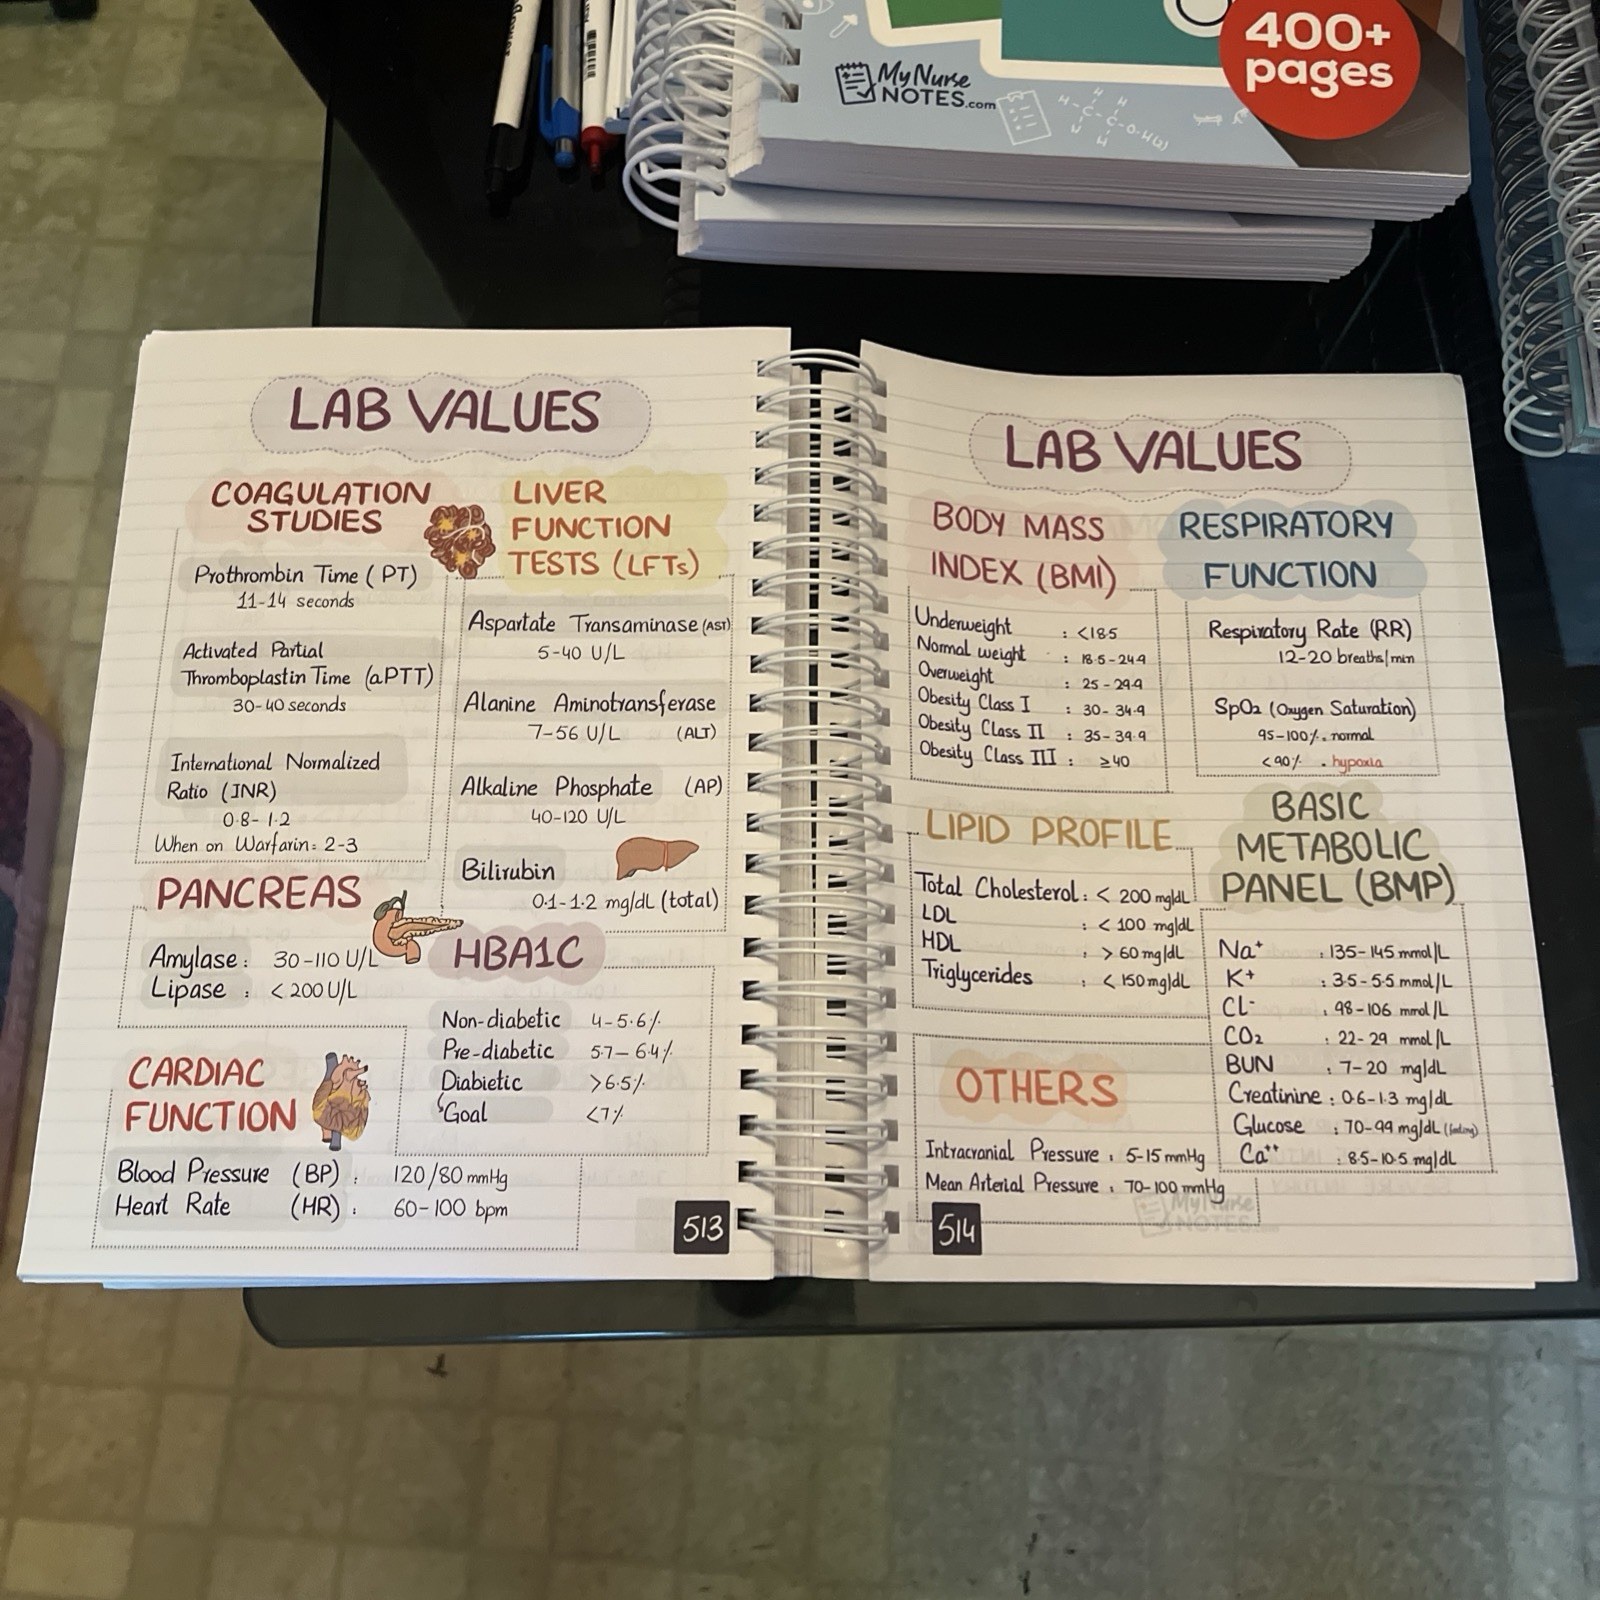 400+
pages
My Nurse
NOTES.com
LAB VALUES
COAGULATION
STUDIES
Prothrombin Time (PT)
11-14 seconds
Activated Partial
Thromboplastin Time (aPTT)
30-40 seconds
International Normalized
Ratio (INR)
0.8-1.2
When on Warfarin: 2-3
LIVER
FUNCTION
TESTS (LFTs)
Aspartate Transaminase (AST)
5-40 U/L
Alanine Aminotransferase
7-56 U/L (ALT)
Alkaline Phosphate (AP)
40-120 U/L
Bilirubin
0.1-1.2 mg/dL (total)
PANCREAS
Amylase: 30-110 U/L
Lipase : <200 U/L
HBA1C
Non-diabetic 4-5.6%
Pre-diabetic 5.7-6.4%
Diabietic >6.5%
Goal <7%
CARDIAC
FUNCTION
Blood Pressure (BP) : 120/80 mmHg
Heart Rate (HR) : 60-100 bpm
513
LAB VALUES
BODY MASS
INDEX (BMI)
Underweight : <18.5
Normal weight : 18.5-24.9
Overweight : 25-29.9
Obesity Class I : 30-34.9
Obesity Class II : 35-39.9
Obesity Class III : ≥40
RESPIRATORY
FUNCTION
Respiratory Rate (RR)
12-20 breaths/min
SpO₂ (Oxygen Saturation)
95-100% . normal
<90% . hypoxia
LIPID PROFILE
Total Cholesterol : < 200 mg/dL
LDL : < 100 mg/dL
HDL : > 60 mg/dL
Triglycerides : < 150 mg/dL
BASIC
METABOLIC
PANEL (BMP)
Na⁺ : 135-145 mmol/L
K⁺ : 3.5-5.5 mmol/L
Cl⁻ : 98-106 mmol/L
CO₂ : 22-29 mmol/L
BUN : 7-20 mg/dL
Creatinine : 0.6-1.3 mg/dL
Glucose : 70-99 mg/dL
Ca⁺⁺ : 8.5-10.5 mg/dL
OTHERS
Intracranial Pressure : 5-15 mmHg
Mean Arterial Pressure : 70-100 mmHg
My Nurse
NOTES
514